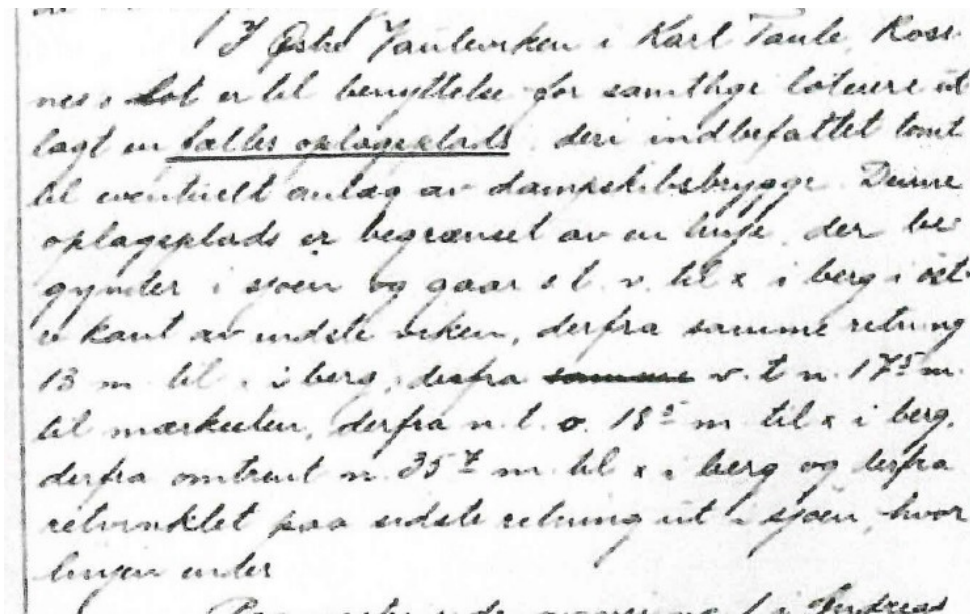 I Østre Tauleviken i Karl Taule, Rose
nes, lot er til benyttelse for samtlige loteiere ut
lagt en fælles oplagsplads, deri indbefattet tomt
til eventuelt anlæg av dampskibsbrygge. Denne
oplagsplads er begrænset av en linje, der be
gynder i sjøen og gaar s. t. v. til x i berg i øst
re kant av indste viken, derfra samme retning
13 m. til x i berg, derfra samme v. t. n. 17⁵ m.
til merkesten, derfra n. t. o. 18⁵ m til x i berg,
derfra omtrent n. 35⁷ m til x i berg og derfra
retvinklet paa sidste retning ut i sjøen, hvor
linjen ender